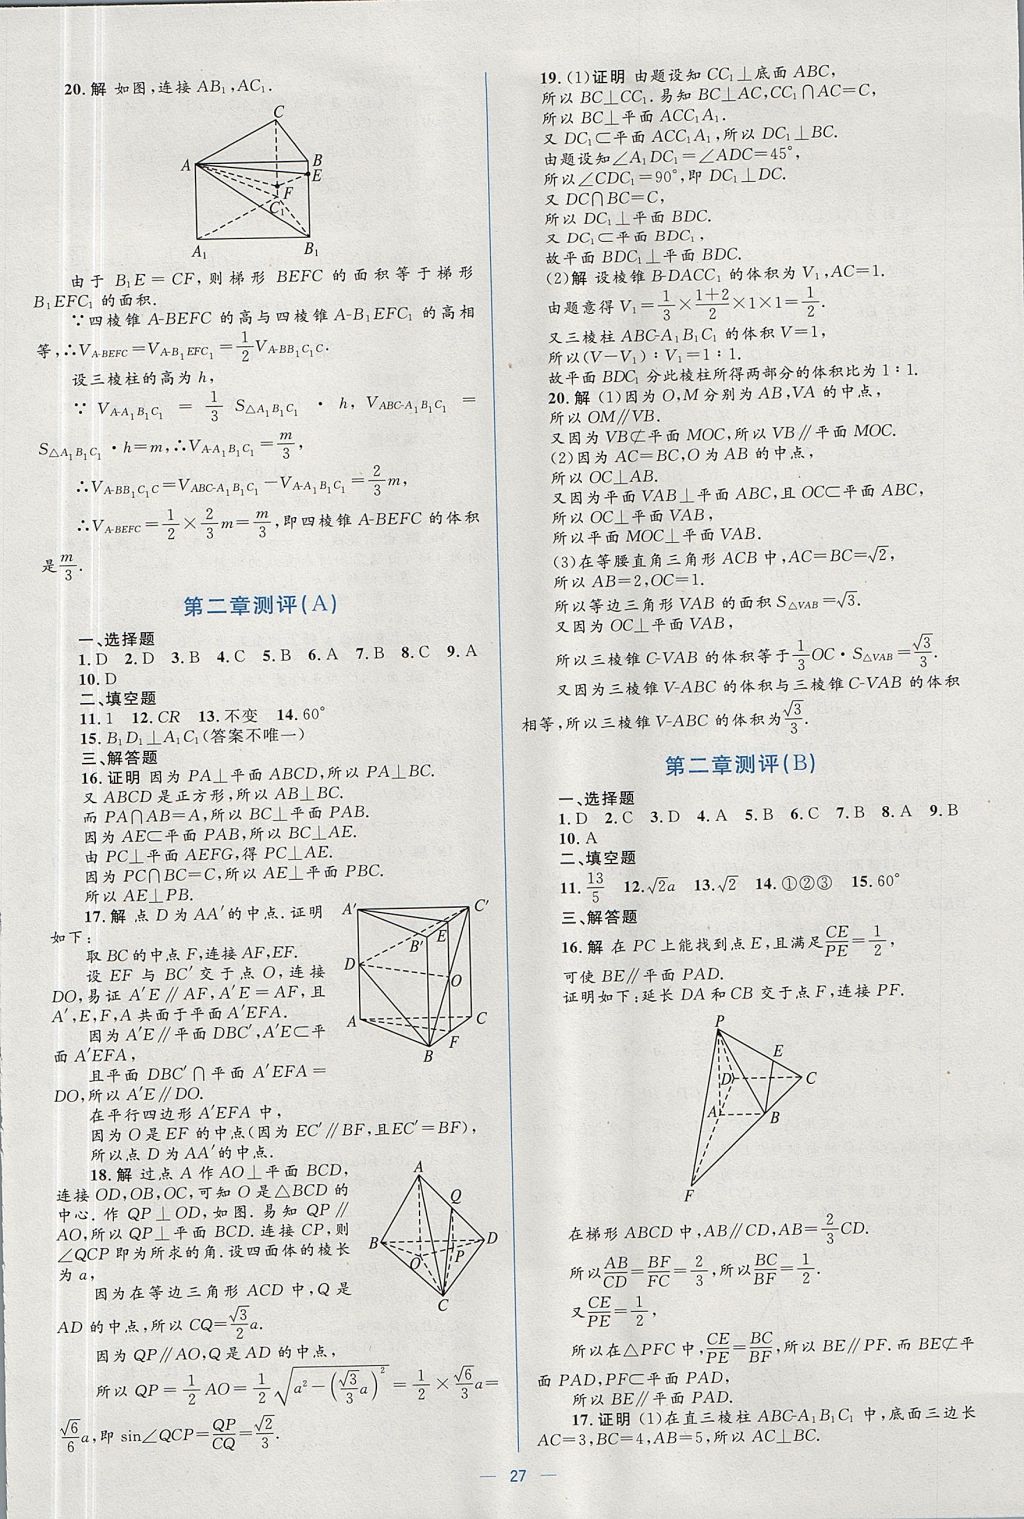 20. 解 如图,连接 AB₁,AC₁.
C
A
B
E
F
C₁
A₁
B₁
由于 B₁E = CF,则梯形 BEFC 的面积等于梯形
B₁EFC₁ 的面积.
∵四棱锥 A-BEFC 的高与四棱锥 A-B₁EFC₁ 的高相
等,∴V_{A-BEFC}=V_{A-B₁EFC₁}=\frac{1}{2}V_{A-BB₁C₁C}.
设三棱柱的高为 h,
∵ V_{A-A₁B₁C₁} = \frac{1}{3} S_{△A₁B₁C₁} · h, V_{ABC-A₁B₁C₁} =
S_{△A₁B₁C₁}·h=m,∴V_{A-A₁B₁C₁}=\frac{m}{3},
∴V_{A-BB₁C₁C}=V_{ABC-A₁B₁C₁}-V_{A-A₁B₁C₁}=\frac{2}{3}m,
∴V_{A-BEFC}=\frac{1}{2}×\frac{2}{3}m=\frac{m}{3},即四棱锥 A-BEFC 的体积
是\frac{m}{3}.
第二章测评(A)
一、选择题
1. D 2. D 3. B 4. C 5. B 6. A 7. B 8. C 9. A
10. D
二、填空题
11. 1 12. CR 13. 不变 14. 60°
15. B₁D₁⊥A₁C₁(答案不唯一)
三、解答题
16. 证明 因为 PA⊥平面 ABCD,所以 PA⊥BC.
又 ABCD 是正方形,所以 AB⊥BC.
而 PA∩AB=A,所以 BC⊥平面 PAB.
因为 AE⊂平面 PAB,所以 BC⊥AE.
由 PC⊥平面 AEFG,得 PC⊥AE.
因为 PC∩BC=C,所以 AE⊥平面 PBC.
所以 AE⊥PB.
17. 解 点 D 为 AA′的中点.证明
如下:
取 BC 的中点 F,连接 AF,EF.
设 EF 与 BC′交于点 O,连接
DO,易证 A′E∥AF,A′E=AF,且
A′,E,F,A 共面于平面 A′EFA.
因为 A′E∥平面 DBC′,A′E⊂平
面 A′EFA,
且平面 DBC′∩平面 A′EFA=
DO,所以 A′E∥DO.
在平行四边形 A′EFA 中,
因为 O 是 EF 的中点(因为 EC′∥BF,且EC′=BF),
所以点 D 为 AA′的中点.
A′
C′
B′
E
D
O
A
C
F
B
18. 解 过点 A 作 AO⊥平面 BCD,
连接 OD,OB,OC,可知 O 是△BCD 的
中心.作 QP⊥OD,如图.易知 QP∥
AO,所以 QP⊥平面 BCD.连接 CP,则
∠QCP 即为所求的角.设四面体的棱长
为 a,
因为在等边三角形 ACD 中,Q 是
AD 的中点,所以 CQ=\frac{√3}{2}a.
因为 QP∥AO,Q 是 AD 的中点,
所以 QP=\frac{1}{2}AO=\frac{1}{2}\sqrt{a²-(\frac{√3}{3}a)²}=\frac{1}{2}×\frac{√6}{3}a=
\frac{√6}{6}a,即 sin∠QCP=\frac{QP}{CQ}=\frac{√2}{3}.
A
Q
B
D
O
P
C
19. (1)证明 由题设知 CC₁⊥底面 ABC,
所以 BC⊥CC₁.易知 BC⊥AC,CC₁∩AC=C,
所以 BC⊥平面 ACC₁A₁.
又 DC₁⊂平面 ACC₁A₁,所以 DC₁⊥BC.
由题设知∠A₁DC₁=∠ADC=45°,
所以∠CDC₁=90°,即 DC₁⊥DC.
又 DC∩BC=C,
所以 DC₁⊥平面 BDC.
又 DC₁⊂平面 BDC₁,
故平面 BDC₁⊥平面 BDC.
(2)解 设棱锥 B-DACC₁ 的体积为 V₁,AC=1.
由题意得 V₁=\frac{1}{3}×\frac{1+2}{2}×1×1=\frac{1}{2}.
又三棱柱 ABC-A₁B₁C₁ 的体积 V=1,
所以(V-V₁)∶V₁=1∶1.
故平面 BDC₁ 分此棱柱所得两部分的体积比为 1∶1.
20. 解 (1)因为 O,M 分别为 AB,VA 的中点,
所以 OM∥VB.
又因为 VB⊄平面 MOC,所以 VB∥平面 MOC.
(2)因为 AC=BC,O 为 AB 的中点,
所以 OC⊥AB.
又因为平面 VAB⊥平面 ABC,且 OC⊂平面 ABC,
所以 OC⊥平面 VAB,
所以平面 MOC⊥平面 VAB.
(3)在等腰直角三角形 ACB 中,AC=BC=√2,
所以 AB=2,OC=1.
所以等边三角形 VAB 的面积 S_{△VAB}=√3.
又因为 OC⊥平面 VAB,
所以三棱锥 C-VAB 的体积等于\frac{1}{3}OC·S_{△VAB}=\frac{√3}{3}.
又因为三棱锥 V-ABC 的体积与三棱锥 C-VAB 的体积
相等,所以三棱锥 V-ABC 的体积为\frac{√3}{3}.
第二章测评(B)
一、选择题
1. D 2. C 3. D 4. A 5. B 6. C 7. B 8. A 9. B
10. A
二、填空题
11. \frac{13}{5} 12. √2a 13. √2 14. ①②③ 15. 60°
三、解答题
16. 解 在 PC 上能找到点 E,且满足\frac{CE}{PE}=\frac{1}{2},
可使 BE∥平面 PAD.
证明如下:延长 DA 和 CB 交于点 F,连接 PF.
P
E
D
C
A
B
F
在梯形 ABCD 中,AB∥CD,AB=\frac{2}{3}CD.
所以\frac{AB}{CD}=\frac{BF}{FC}=\frac{2}{3},所以\frac{BC}{BF}=\frac{1}{2}.
又\frac{CE}{PE}=\frac{1}{2},
所以在△PFC 中,\frac{CE}{PE}=\frac{BC}{BF},所以 BE∥PF.而 BE⊄平
面 PAD,PF⊂平面 PAD,
所以 BE∥平面 PAD.
17. 证明 (1)在直三棱柱 ABC-A₁B₁C₁ 中,底面三边长
AC=3,BC=4,AB=5,所以 AC⊥BC.
— 27 —